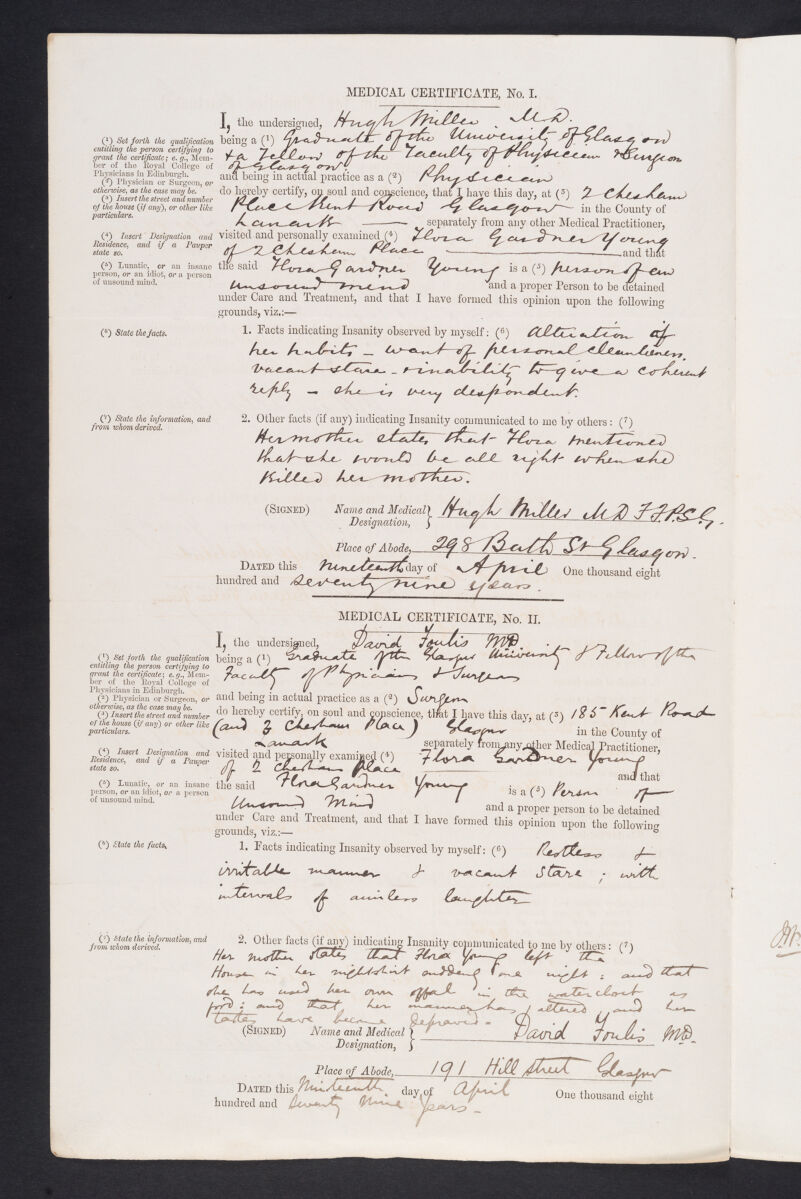 MEDICAL CERTIFICATE, No. I.
I, the undersigned, Hugh Miller M.D.
being a (1) Graduate of the University of Glasgow
& a Fellow of the Faculty of Physicians & Surgeons
of Glasgow
and being in actual practice as a (2) Physician
do hereby certify, on soul and conscience, that I have this day, at (3) 2 Chesham
Place Kent Road Glasgow in the County of
Lanark separately from any other Medical Practitioner,
visited and personally examined (4) Flora Gardner Young
of 2 Chesham Place and that
the said Flora Gardner Young is a (5) person of an
unsound mind and a proper Person to be detained
under Care and Treatment, and that I have formed this opinion upon the following
grounds, viz.:—
(1) Set forth the qualification
entitling the person certifying to
grant the certificate; e.g., Mem-
ber of the Royal College of
Physicians in Edinburgh.
(2) Physician or Surgeon, or
otherwise, as the case may be.
(3) Insert the street and number
of the house (if any), or other like
particulars.
(4) Insert Designation and
Residence, and if a Pauper
state so.
(5) Lunatic, or an insane
person, or an idiot, or a person
of unsound mind.
(6) State the facts.
1. Facts indicating Insanity observed by myself: (6) Alteration of
her habits – want of personal cleanliness.
vacant stare – inability to give a coherent
reply – she is very despondent.
(7) State the information, and
from whom derived.
2. Other facts (if any) indicating Insanity communicated to me by others: (7)
Her mother states that Flora mentioned
that she would be all right when she
killed her mother.
(SIGNED) Name and Medical Designation, Hugh Miller MD F.F.P.S.G.
Place of Abode, 298 Bath St Glasgow.
DATED this nineteenth day of April One thousand eight
hundred and seventy nine years.
MEDICAL CERTIFICATE, No. II.
I, the undersigned, David Foulis MD.
being a (1) Graduate of the Glasgow University & Fellow of the
Faculty of Physicians & Surgeons
and being in actual practice as a (2) Surgeon
do hereby certify, on soul and conscience, that I have this day, at (3) 185 Kent Road
(and 2 Chesham Place) Glasgow in the County of
Lanark separately from any other Medical Practitioner,
visited and personally examined (4) Flora Gardner Young
of 2 Chesham Place and that
the said Flora Gardner Young is a (5) Person of
Unsound Mind and a proper person to be detained
under Care and Treatment, and that I have formed this opinion upon the following
grounds, viz.:—
(1) Set forth the qualification
entitling the person certifying to
grant the certificate; e.g., Mem-
ber of the Royal College of
Physicians in Edinburgh.
(2) Physician or Surgeon, or
otherwise, as the case may be.
(3) Insert the street and number
of the house (if any) or other like
particulars.
(4) Insert Designation and
Residence, and if a Pauper
state so.
(5) Lunatic, or an insane
person, or an idiot, or a person
of unsound mind.
(6) State the facts.
1. Facts indicating Insanity observed by myself: (6) Restless &
irritable manner & vacant stare; with
intervals of aimless laughter
(7) State the information, and
from whom derived.
2. Other facts (if any) indicating Insanity communicated to me by others: (7)
Her mother states that Flora Young left the
House in her nightshirt suddenly one night: and that
she has used her own offal in the watercloset as
food: and that her manner has altered and her
tastes have become depraved.
(SIGNED) Name and Medical Designation, David Foulis MD.
Place of Abode, 191 Hill Street Glasgow
DATED this Nineteenth day of April One thousand eight
hundred and Seventy Nine years.